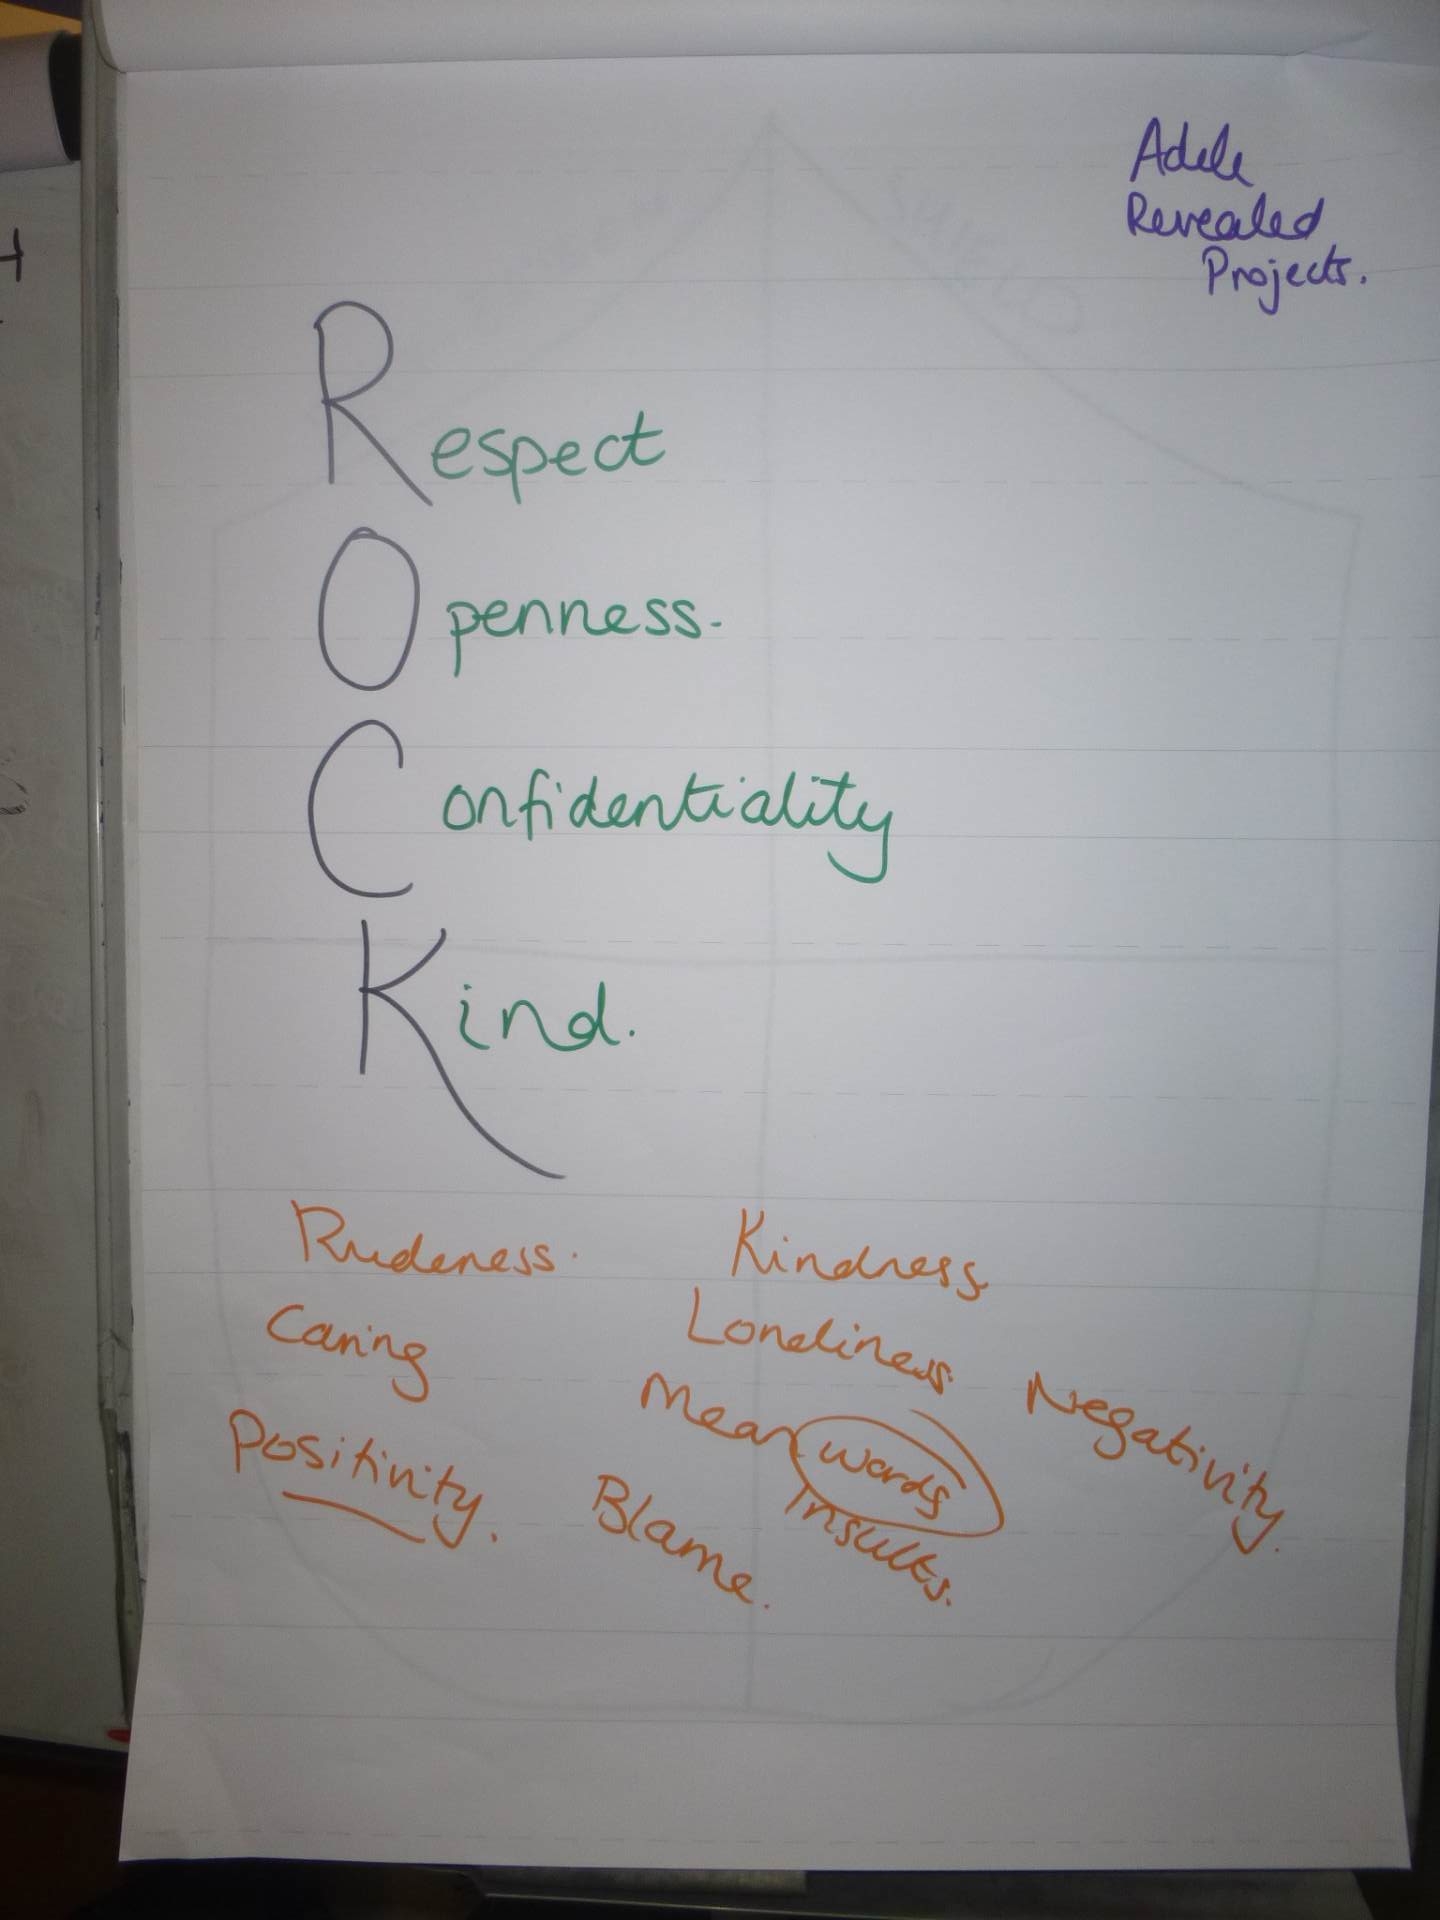 Adele
Revealed
Projects.
Respect
Openness.
Confidentiality
Kind.
Rudeness.
Kindness
Caring
Loneliness.
Negativity.
Mean words
Positivity.
Blame.
Insults.